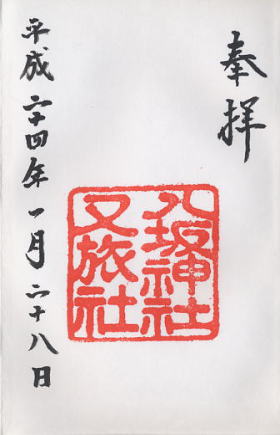 奉拝
八坂神社
又旅社
平成二十四年一月二十八日